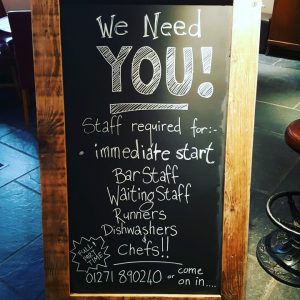 We Need
YOU!
Staff required for:-
immediate start
Bar Staff
Waiting Staff
Runners
Dishwashers
&
Chefs!!
01271 890240 or come
on in....